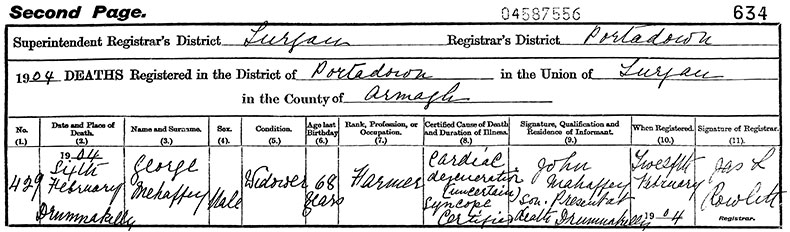 Second Page.
04587556
634
Superintendent Registrar's District Lurgan Registrar's District Portadown
1904 DEATHS Registered in the District of Portadown in the Union of Lurgan
in the County of Armagh
No. (1.)
Date and Place of Death. (2.)
Name and Surname. (3.)
Sex. (4.)
Condition. (5.)
Age last Birthday (6.)
Rank, Profession, or Occupation. (7.)
Certified Cause of Death and Duration of Illness. (8.)
Signature, Qualification and Residence of Informant. (9.)
When Registered. (10.)
Signature of Registrar. (11.)
429
1904
Sixth
February
Drumnakelly
George
Mehaffey
Male
Widower
68
years
Farmer
Cardiac
degeneration
(uncertain)
Syncope
Certified
John
Mehaffey
son. Present at
death Drumnakelly
Twelfth
February
1904
Jas L
Rowlett
Registrar.